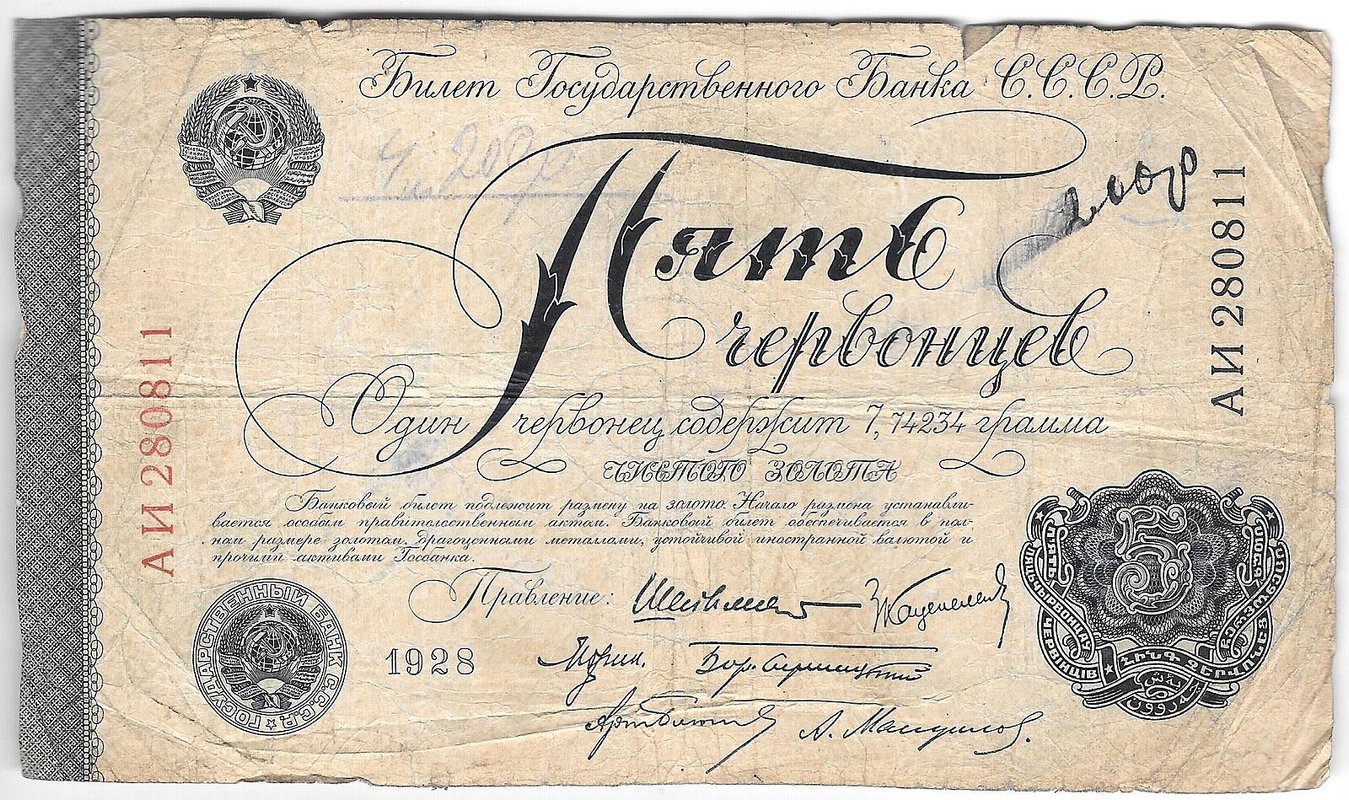 Билет Государственного Банка С.С.С.Р.
Пять
червонцев
Один червонец содержит 7,74234 грамма
чистого золота
Банковый билет подлежит размену на золото. Начало размена устанавли-
вается особым правительственным актом. Банковый билет обеспечивается в пол-
ном размере золотом, драгоценными металлами, устойчивой иностранной валютой и
прочими активами Госбанка.
Правление:
1928
АИ 280811
АИ 280811
ГОСУДАРСТВЕННЫЙ БАНК С.С.С.Р.
5
ПЯТЬ
ЧЕРВІНЦІВ
ՀԻՆԳ ՉԵՐՎՈՆԵՑ